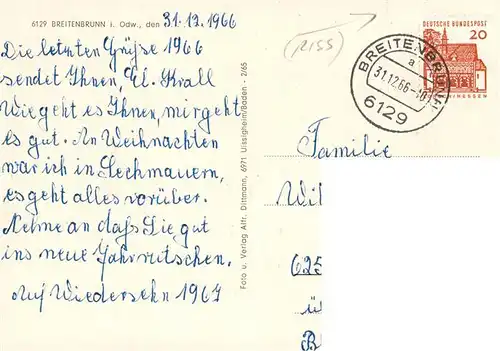 6129 BREITENBRUNN i. Odw., den 31.12.1966
Die letzten Grüße 1966
sendet Ihnen, El. Krall
Wie geht es Ihnen, mir geht
es gut. An Weihnachten
war ich in Sechmauern,
es geht alles vorüber.
Nehme an daß Sie gut
ins neue Jahr rutschen.
Auf Wiedersehn 1967
Foto u. Verlag Alfr. Dittmann, 6971 Uissigheim/Baden - 2/65
(RISS)
BREITENBRUNN
a
31.12.66-18
6129
DEUTSCHE BUNDESPOST
20
HESSEN
Familie
Wil
625
ü
B